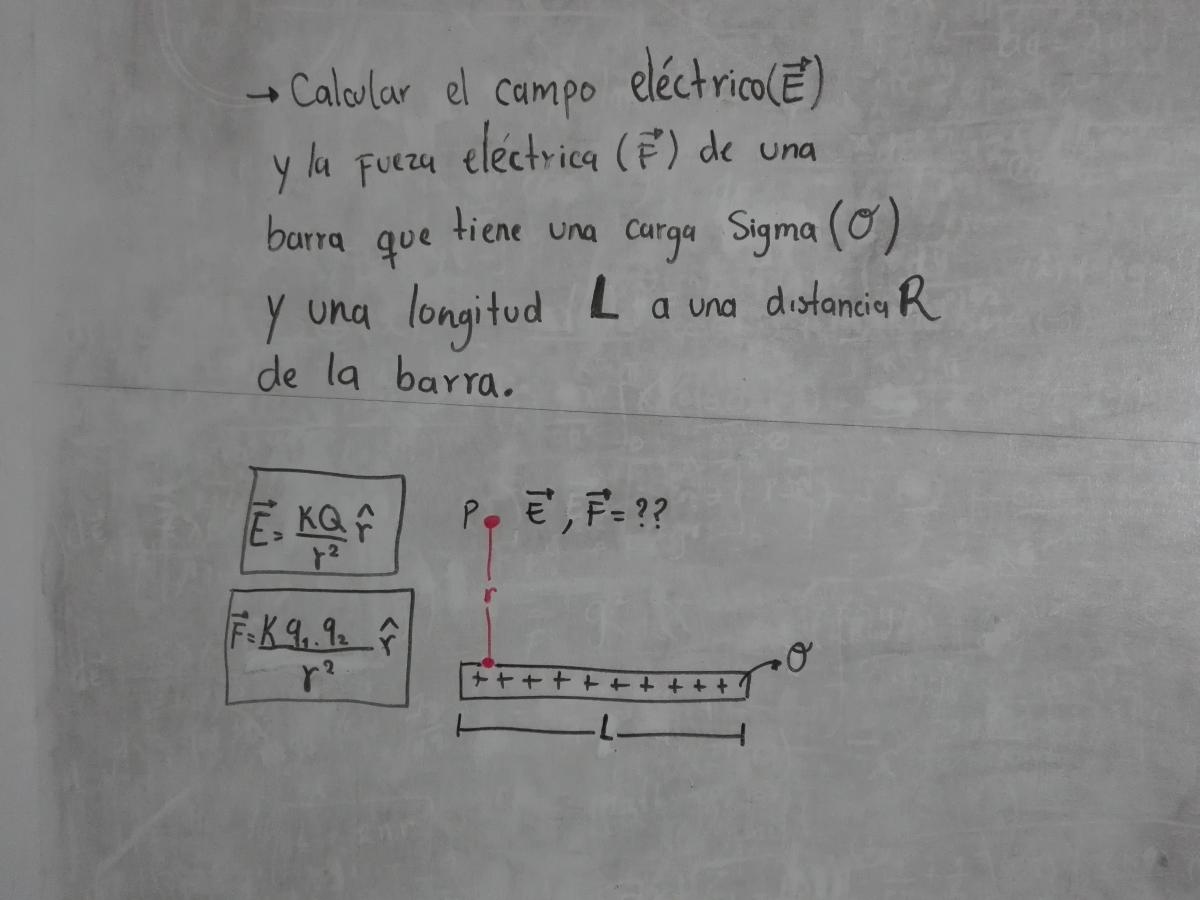 → Calcular el campo eléctrico (E⃗)
y la Fueza eléctrica (F⃗) de una
barra que tiene una carga Sigma (σ)
y una longitud L a una distancia R
de la barra.
E⃗ = KQ/r² r̂
P E⃗, F⃗ = ??
F⃗ = K q₁.q₂/r² r̂
r
σ
+ + + + + + + + + +
L